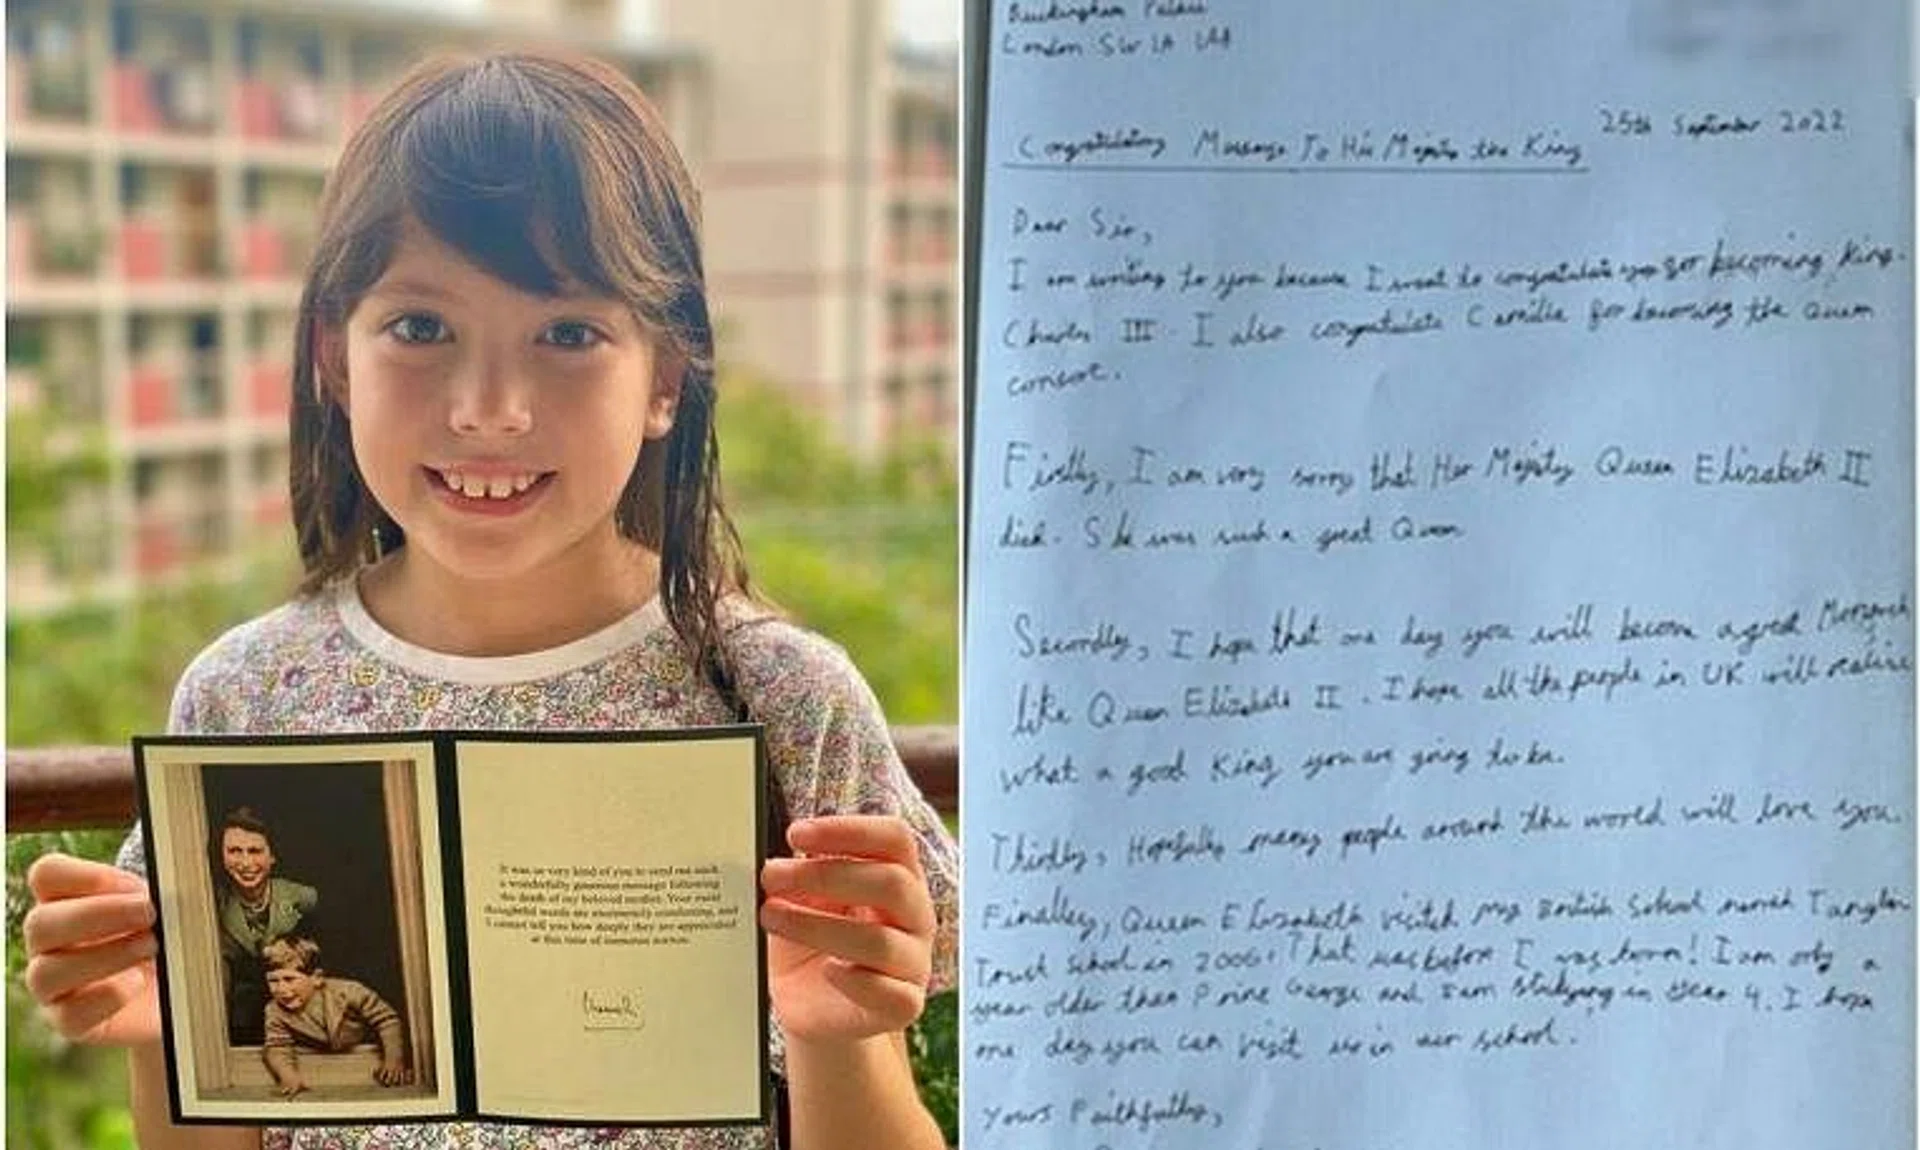 It was so very kind of you to send me such
a wonderfully generous message following
the death of my beloved mother. Your most
thoughtful words are enormously comforting, and
I cannot tell you how deeply they are appreciated
at this time of immense sorrow.
Buckingham Palace
London SW1A 1AA
25th September 2022
Message To His Majesty the King
Dear Sir,
I am writing to you because I want to congratulate you for becoming King
Charles III. I also congratulate Camilla for becoming the Queen
consort.
Firstly, I am very sorry that Her Majesty Queen Elizabeth II
died. She was such a great Queen
Secondly, I hope that one day you will become a great Monarch
like Queen Elizabeth II. I hope all the people in UK will realise
what a good King you are going to be.
Thirdly, Hopefully many people around the world will love you.
Finalley, Queen Elizabeth visited my British School named Tanglin
Trust School in 2006. That was before I was born! I am only a
year older than Prine George and I am studying in Year 4. I hope
one day you can visit us in our school.
Yours Faithfully,